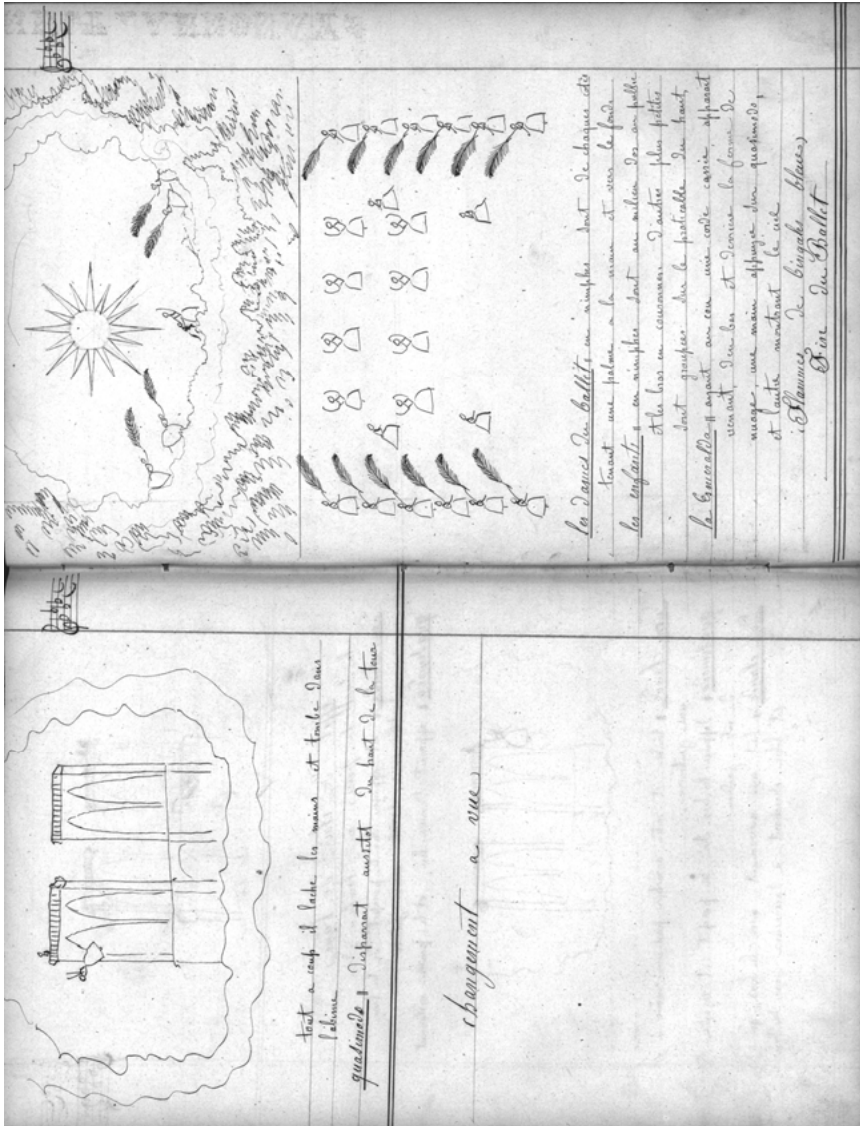 tout a coup il lache les mains et tombe dans
l'abime
quasimodo " disparrait aussitot du haut de la tour
changement a vue
les dames du ballet " en nimphes sont de chaques cotés
tenant une palme a la main et vers le fonds
les enfants " en nimphes sont au milieu dos au public
et les bras en couronnes d'autres plus petites
sont groupées sur le praticable du haut,
la Esmeralda " ayant au cou une corde cassée apparait
venant d'en bas et derriere la ferme de
nuage, une main appuyée sur quasimodo,
et l'autre montrant le ciel
(flammes de bingale blanc)
Fin du Ballet